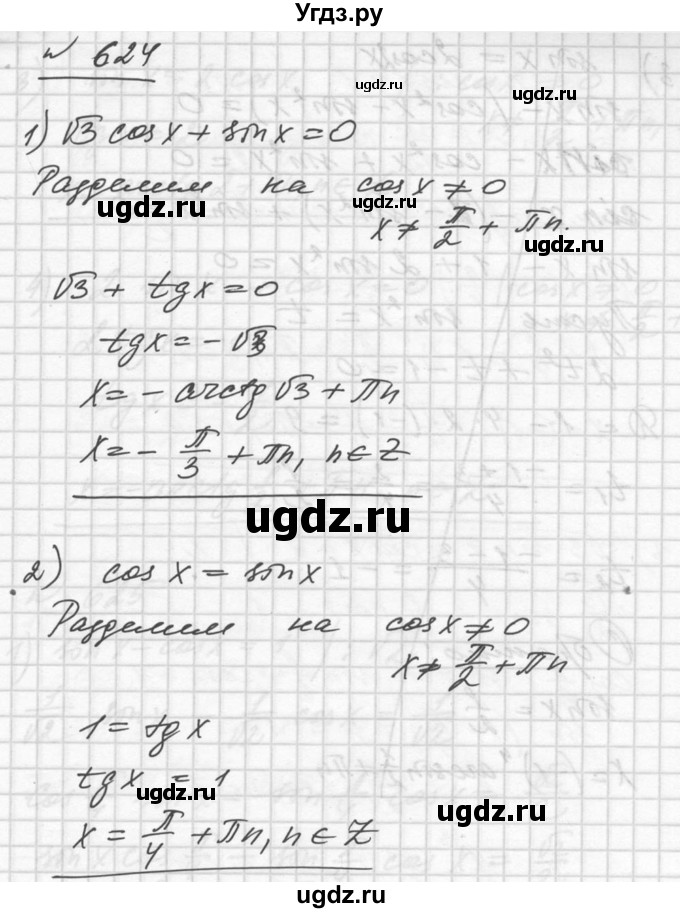 Угдз.ру
№ 624
ugdz.ru
1) √3 cosx + sinx = 0
Разделим на cosx ≠ 0
ugdz.ru ugdz.ru
x ≠ π/2 + πn.
ugdz.ru
√3 + tgx = 0
tgx = - √3
x = - arctg √3 + πn
x = - π/3 + πn, n ∈ Z
ugdz.ru
2) cos x = sinx
Разделим на cosx ≠ 0
x ≠ π/2 + πn
1 = tgx
tgx = 1
ugdz.ru ugdz.ru
x = π/4 + πn, n ∈ Z
ugdz.ru